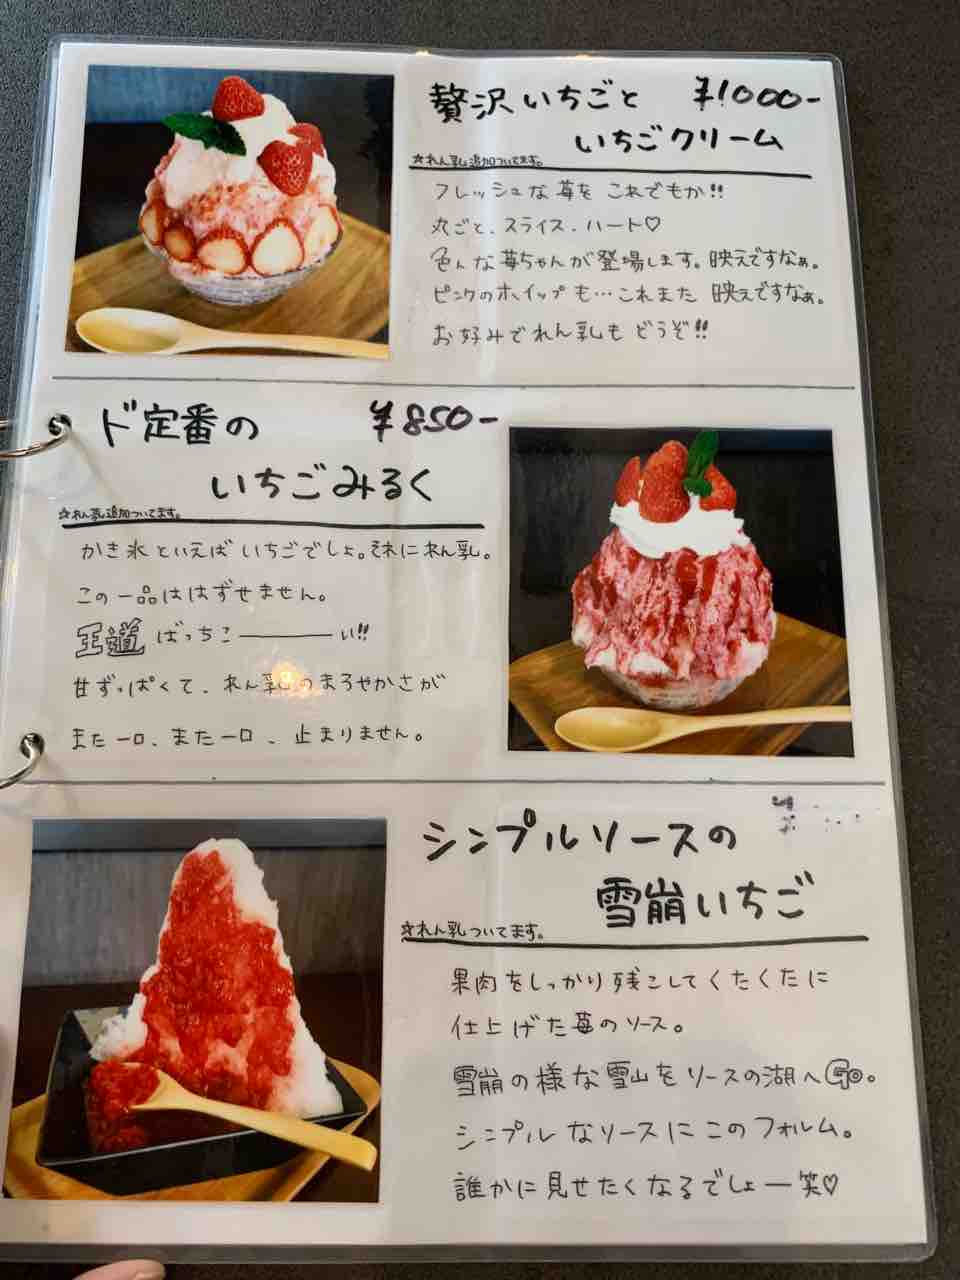 贅沢いちごと ¥1000-
いちごクリーム
☆れん乳追加ついてます。
フレッシュな苺を これでもか!!
丸ごと、スライス、ハート♡
色んな苺ちゃんが登場します。映えですなぁ。
ピンクのホイップも…これまた 映えですなぁ。
お好みでれん乳もどうぞ!!
ド定番の ¥850-
いちごみるく
☆れん乳追加ついてます。
かき氷といえばいちごでしょ。それにれん乳。
この一品ははずせません。
王道 ばっちこーーーい!!
甘ずっぱくて、れん乳のまろやかさが
また一口、また一口、止まりません。
シンプルソースの
雪崩いちご
☆れん乳ついてます。
果肉をしっかり残こしてくたくたに
仕上げた苺のソース。
雪崩の様な雪山をソースの湖へGo。
シンプルなソースにこのフォルム。
誰かに見せたくなるでしょー笑♡